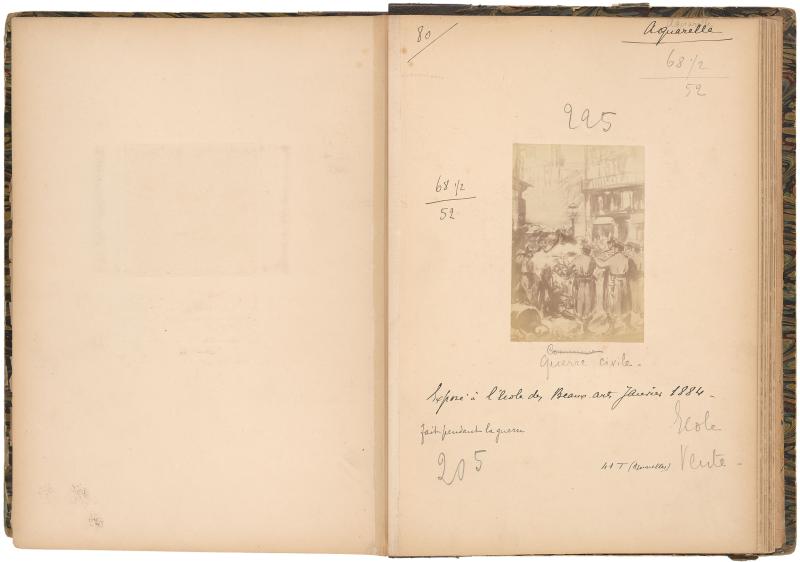 80
Aquarelle
68 1/2
52
225
68 1/2
52
Commune
Guerre civile.
Exposé à l'école des Beaux-arts Janvier 1884.
fait pendant la guerre
Ecole
205
41 T (Aquarelles)
Vente.